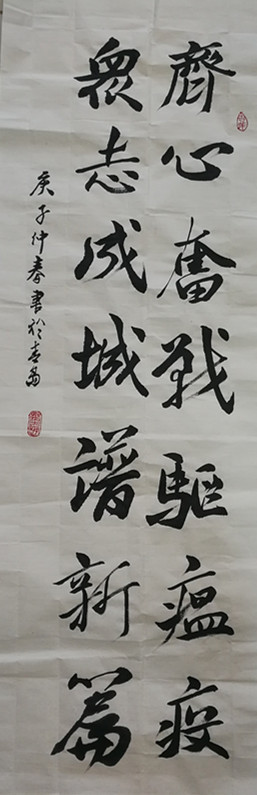 齊心奮戰驅瘟疫
衆志成城譜新篇
庚子仲春書於青島